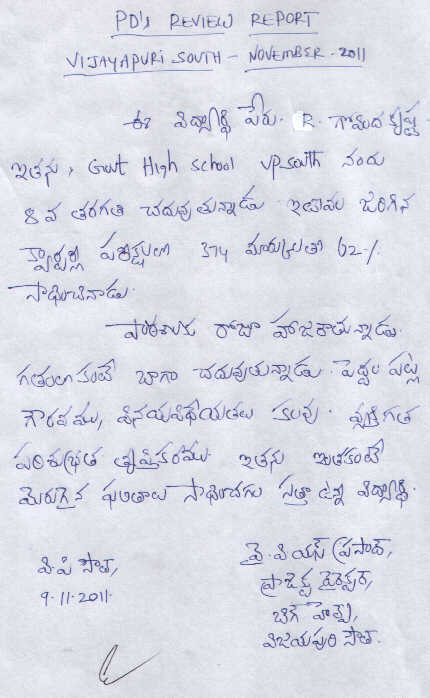 PD's REVIEW REPORT
VIJAYAPURI SOUTH – NOVEMBER - 2011
ఈ విద్యార్థి పేరు. R. గోవింద కృష్ణ
ఇతను, Govt High school VP south నందు
8 వ తరగతి చదువుతున్నాడు. ఇటీవల జరిగిన
క్వార్టర్లీ పరీక్షలలో 374 మార్కులతో 62 %
సాధించినాడు.
పాఠశాలకు రోజూ హాజరౌతున్నాడు.
గతంలో కంటే బాగా చదువుతున్నాడు. పెద్దల పట్ల
గౌరవము, వినయవిధేయతలు కలవు. వ్యక్తిగత
పరిశుభ్రత తృప్తికరము. ఇతను ఇంతకంటే
మెరుగైన ఫలితాలు సాధించగల సత్తా ఉన్న విద్యార్థి.
వి.పి సౌత్,
9.11.2011.
వై. వి యస్ ప్రసాద్,
ప్రాజెక్టు డైరెక్టర్,
బిగ్ హెల్ప్,
విజయపురి సౌత్.